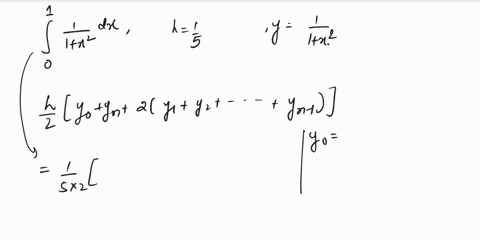 ∫₀¹ 1/(1+x²) dx, h=1/5, y= 1/(1+x²)
h/2 [y₀+yₙ+ 2(y₁+y₂+ - - - - + yₙ₋₁)]
y₀=
= 1/(5×2) [